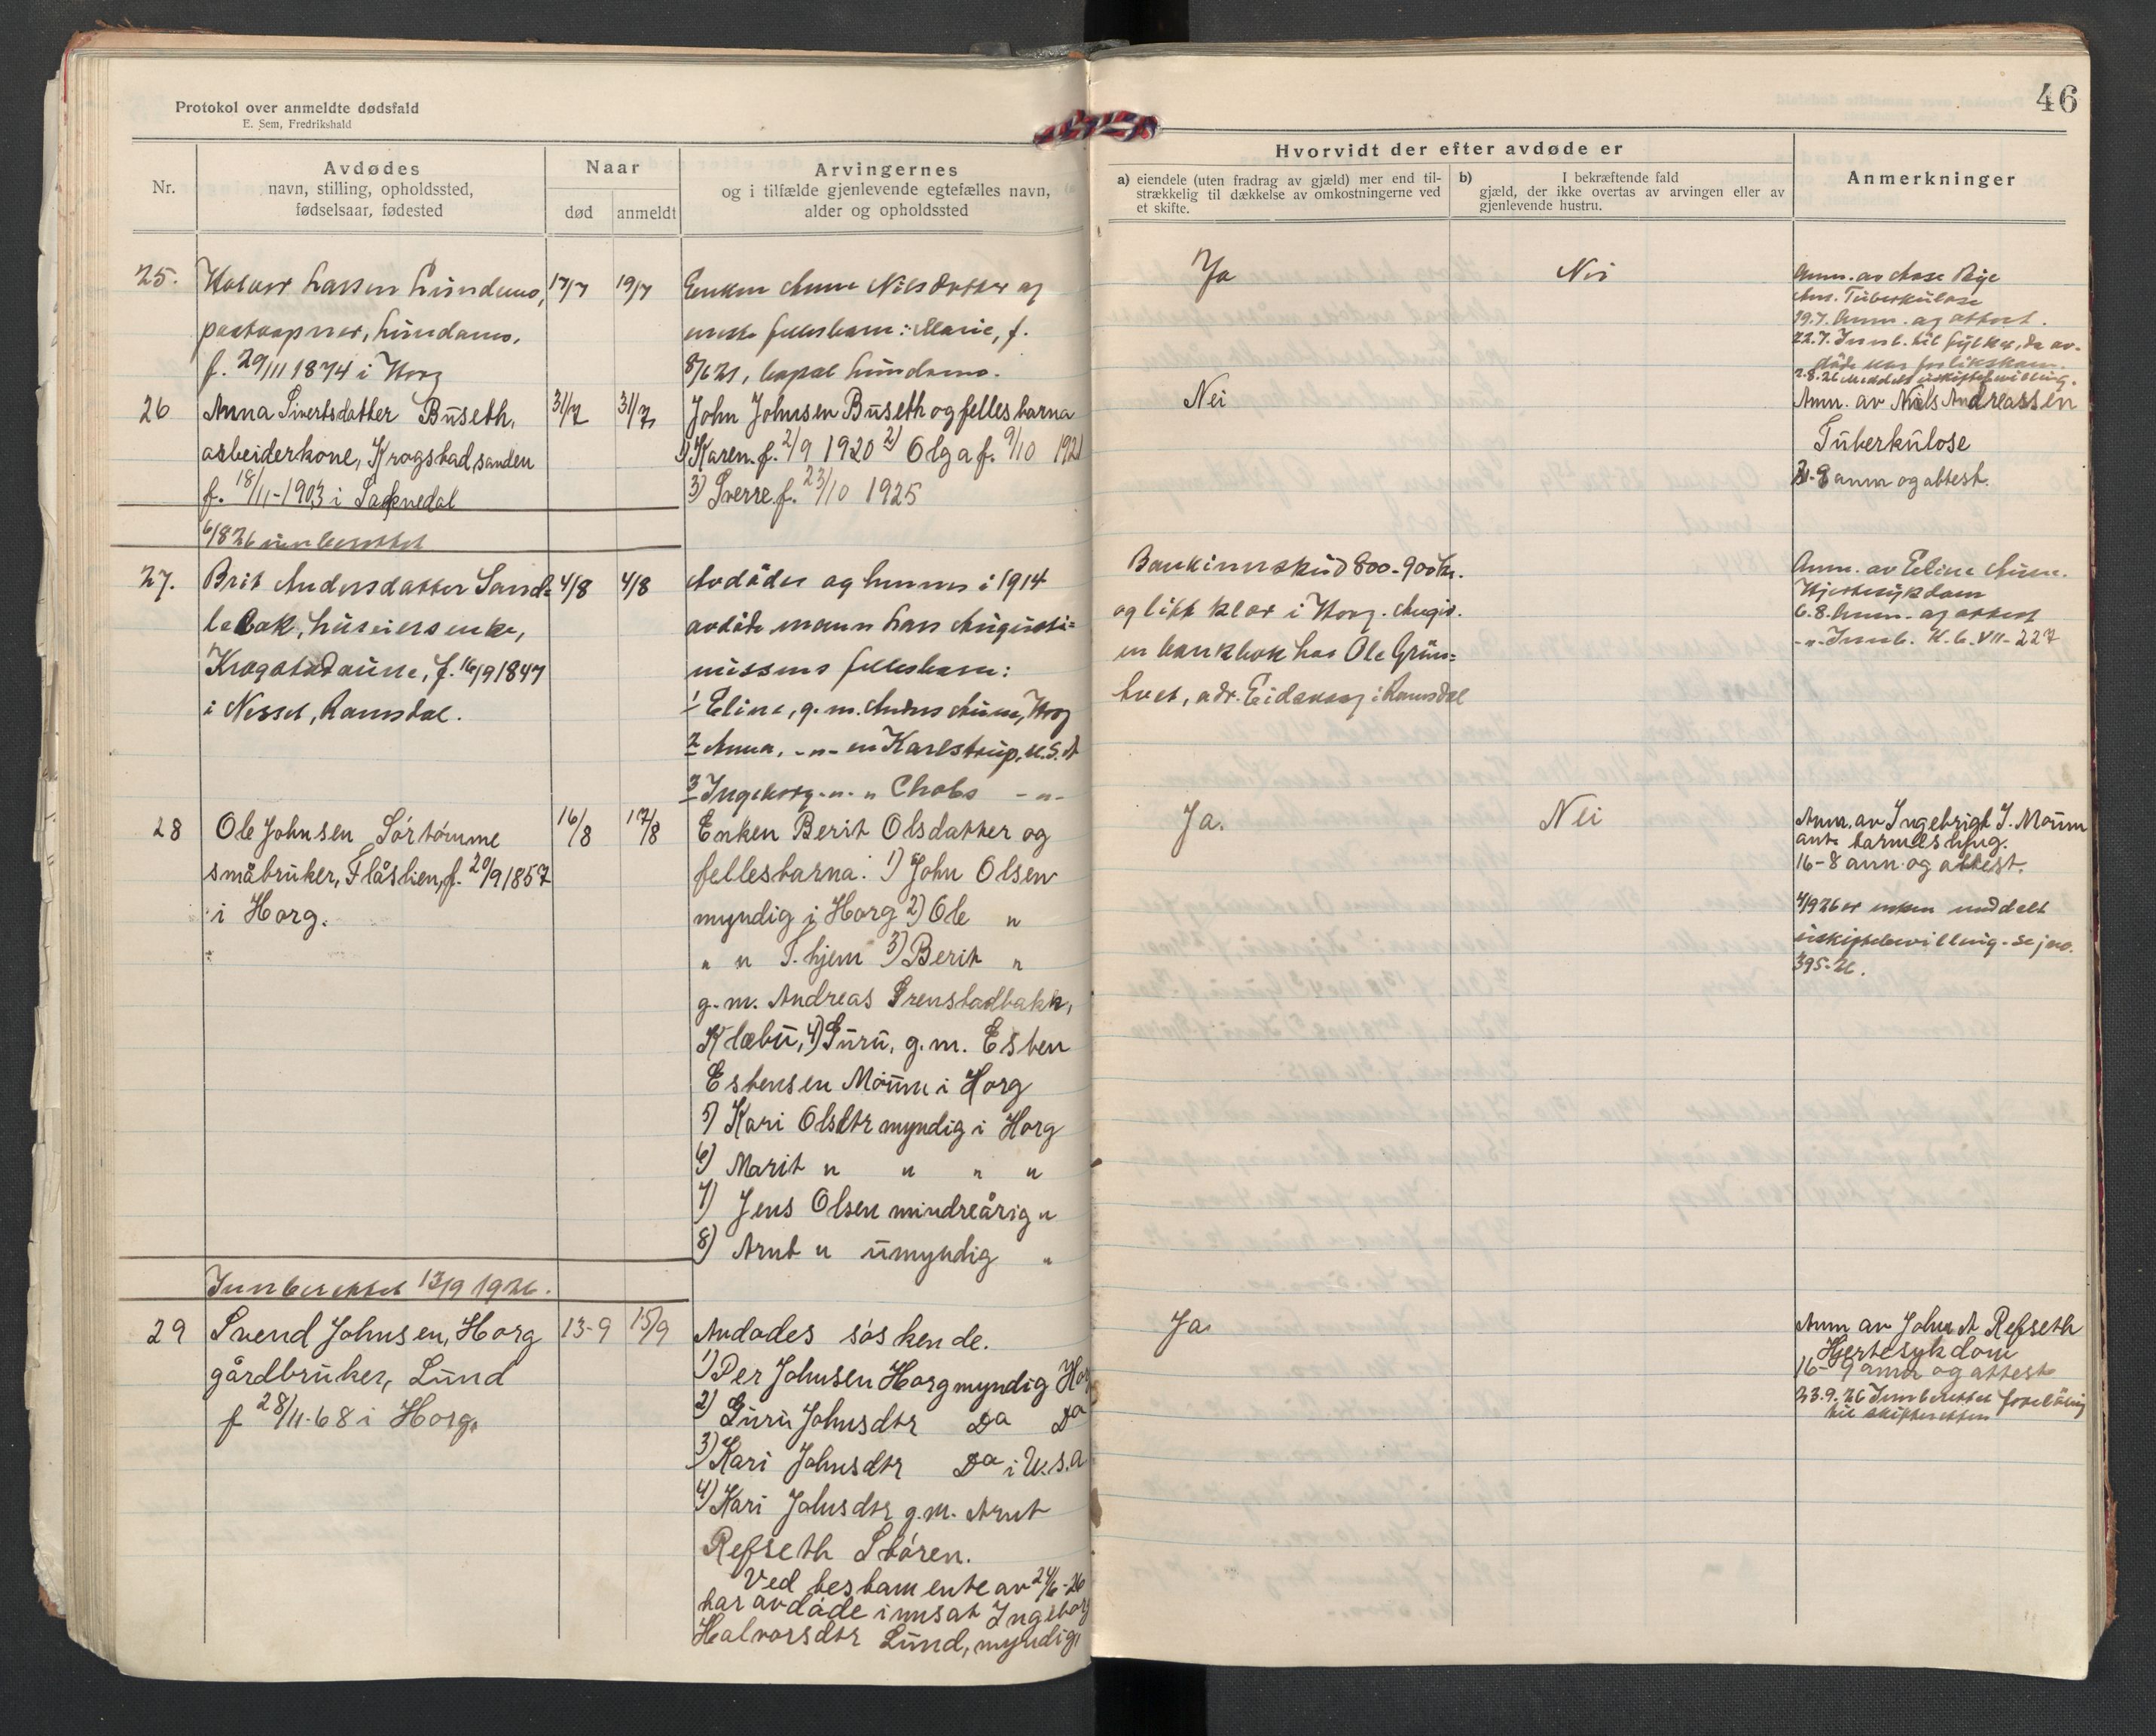 Protokol over anmeldte dødsfald
E. Sem, Fredrikshald
46
Nr.
Avdødes
navn, stilling, opholdssted,
fødselsaar, fødested
Naar
død
anmeldt
Arvingernes
og i tilfælde gjenlevende egtefælles navn,
alder og opholdssted
Hvorvidt der efter avdøde er
a) eiendele (uten fradrag av gjæld) mer end til-
strækkelig til dækkelse av omkostningerne ved
et skifte.
b) I bekræftende fald
gjæld, der ikke overtas av arvingen eller av
gjenlevende hustru.
Anmerkninger
25.
Larsen Lundamo,
Lundamo.
f. 29/11 1874 i Horg
17/7
19/7
Enken Anne Nilsdatter og
eneste fellesbarn: Marie, f.
8/6 21, Lundamo.
Ja
Nei
Anm. av
Tuberkulose
19.7. Anm. og attest.
22.7. Innb. til
26
Anna Sivertsdatter Buseth,
arbeiderkone, Krogstadsanden
f. 18/11-1903 i
6/8 26 innberettet
31/7
31/7
John Johnsen Buseth og fellesbarna
1) Karen f. 2/9 1920 2) Olga f. 9/10 1921
3) Sverre f. 23/10 1925
Nei
Anm. av Niels Andreassen
Tuberkulose
anm og attest.
27.
Brit Andersdatter Sand-
Krogstadaune, f. 16/9 1847
i Nesset, Romsdal.
4/8
4/8
Avdødes og hennes i 1914
avdøde mann Lars Augusti-
nussens fellesbarn:
1 Eline, g.m. Anders Aune, Horg
2 Anna, -"- en Karlstrup, U.S.A
3 Ingeborg -"- " Chobs -"-
Bankinnskud 800-900 kr.
og litt klær i Horg. Angiv.
en bankbok hos Ole Grün-
adr. Eidsvaag i Romsdal
Anm. av Eline Aune.
Hjertesykdom
6.8. Anm. og attest
-"- Innb. K.b. VII-227
28
Ole Johnsen Sörtömme
småbruker, Flåslien, f. 20/9 1857
i Horg.
16/8
17/8
Enken Berit Olsdatter og
fellesbarna: 1) John Olsen
myndig i Horg 2) Ole "
" " T.hjem 3) Berit "
g.m. Andreas Grenstadbakk,
Klæbu, 4) Guru, g.m. Esten
Estensen Moum i Horg
5) Kari Olsdtr myndig i Horg
6) Marit " " " "
7) Jens Olsen mindreårig "
8) Arnt " umyndig "
Ja.
Nei
Anm. av Ingebrigt J. Moum
16-8 anm og attest.
4/9 26 er enken meddelt
uskiftebevilling. Se jno.
395-26.
Innberettet 13/9 1926.
29
Svend Johnsen, Horg
gårdbruker, Lund
f 28/11-68 i Horg.
13-9
15/9
Avdødes söskende.
1) Per Johnsen Horg myndig Horg
2) Guru Johnsdtr Do Do
3) Kari Johnsdtr Do i U.S.A
4) Kari Johnsdtr g.m. Arnt
Refseth Stören.
Ved testamente av 24/6-26
har avdøde innsat Ingeborg
Halvorsdtr Lund, myndig,
Ja.
Anm av John A Refseth
Hjertesykdom
16-9 anm og attest
23.9.26 Innberettet foreløbig
til skifteretten